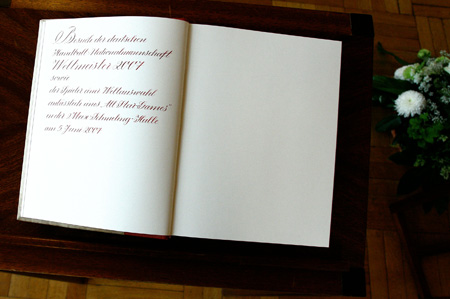 Besuch der deutschen
Handball-Nationalmannschaft
Weltmeister 2007
sowie
der Spieler einer Weltauswahl
anlässlich eines "All Star-Games"
in der Max-Schmeling-Halle
am 3. Juni 2007